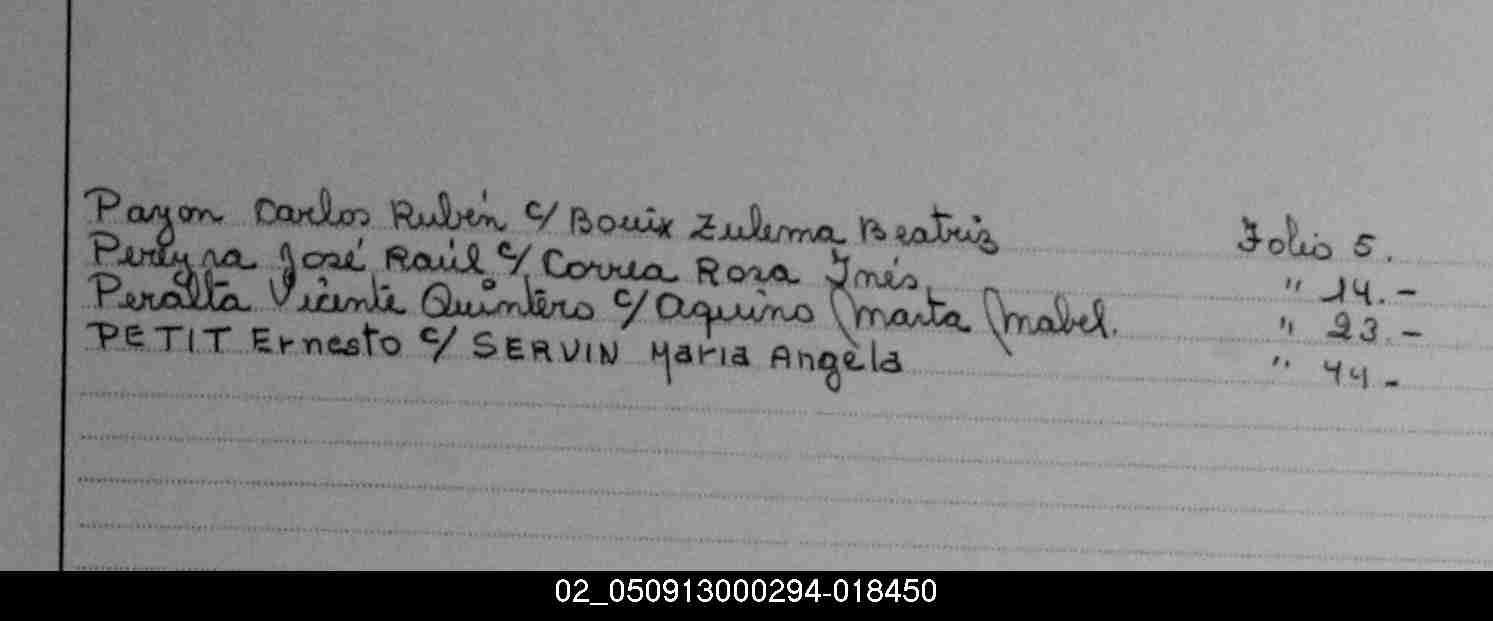 Payon Carlos Rubén c/ Bouix Zulema Beatriz Folio 5.
Pereyra José Raúl c/ Correa Rosa Inés " 14.-
Peralta Vicente Quintero c/ Aquino Marta Mabel. " 23.-
PETIT Ernesto c/ SERVIN Maria Angela " 44-
02_050913000294-018450